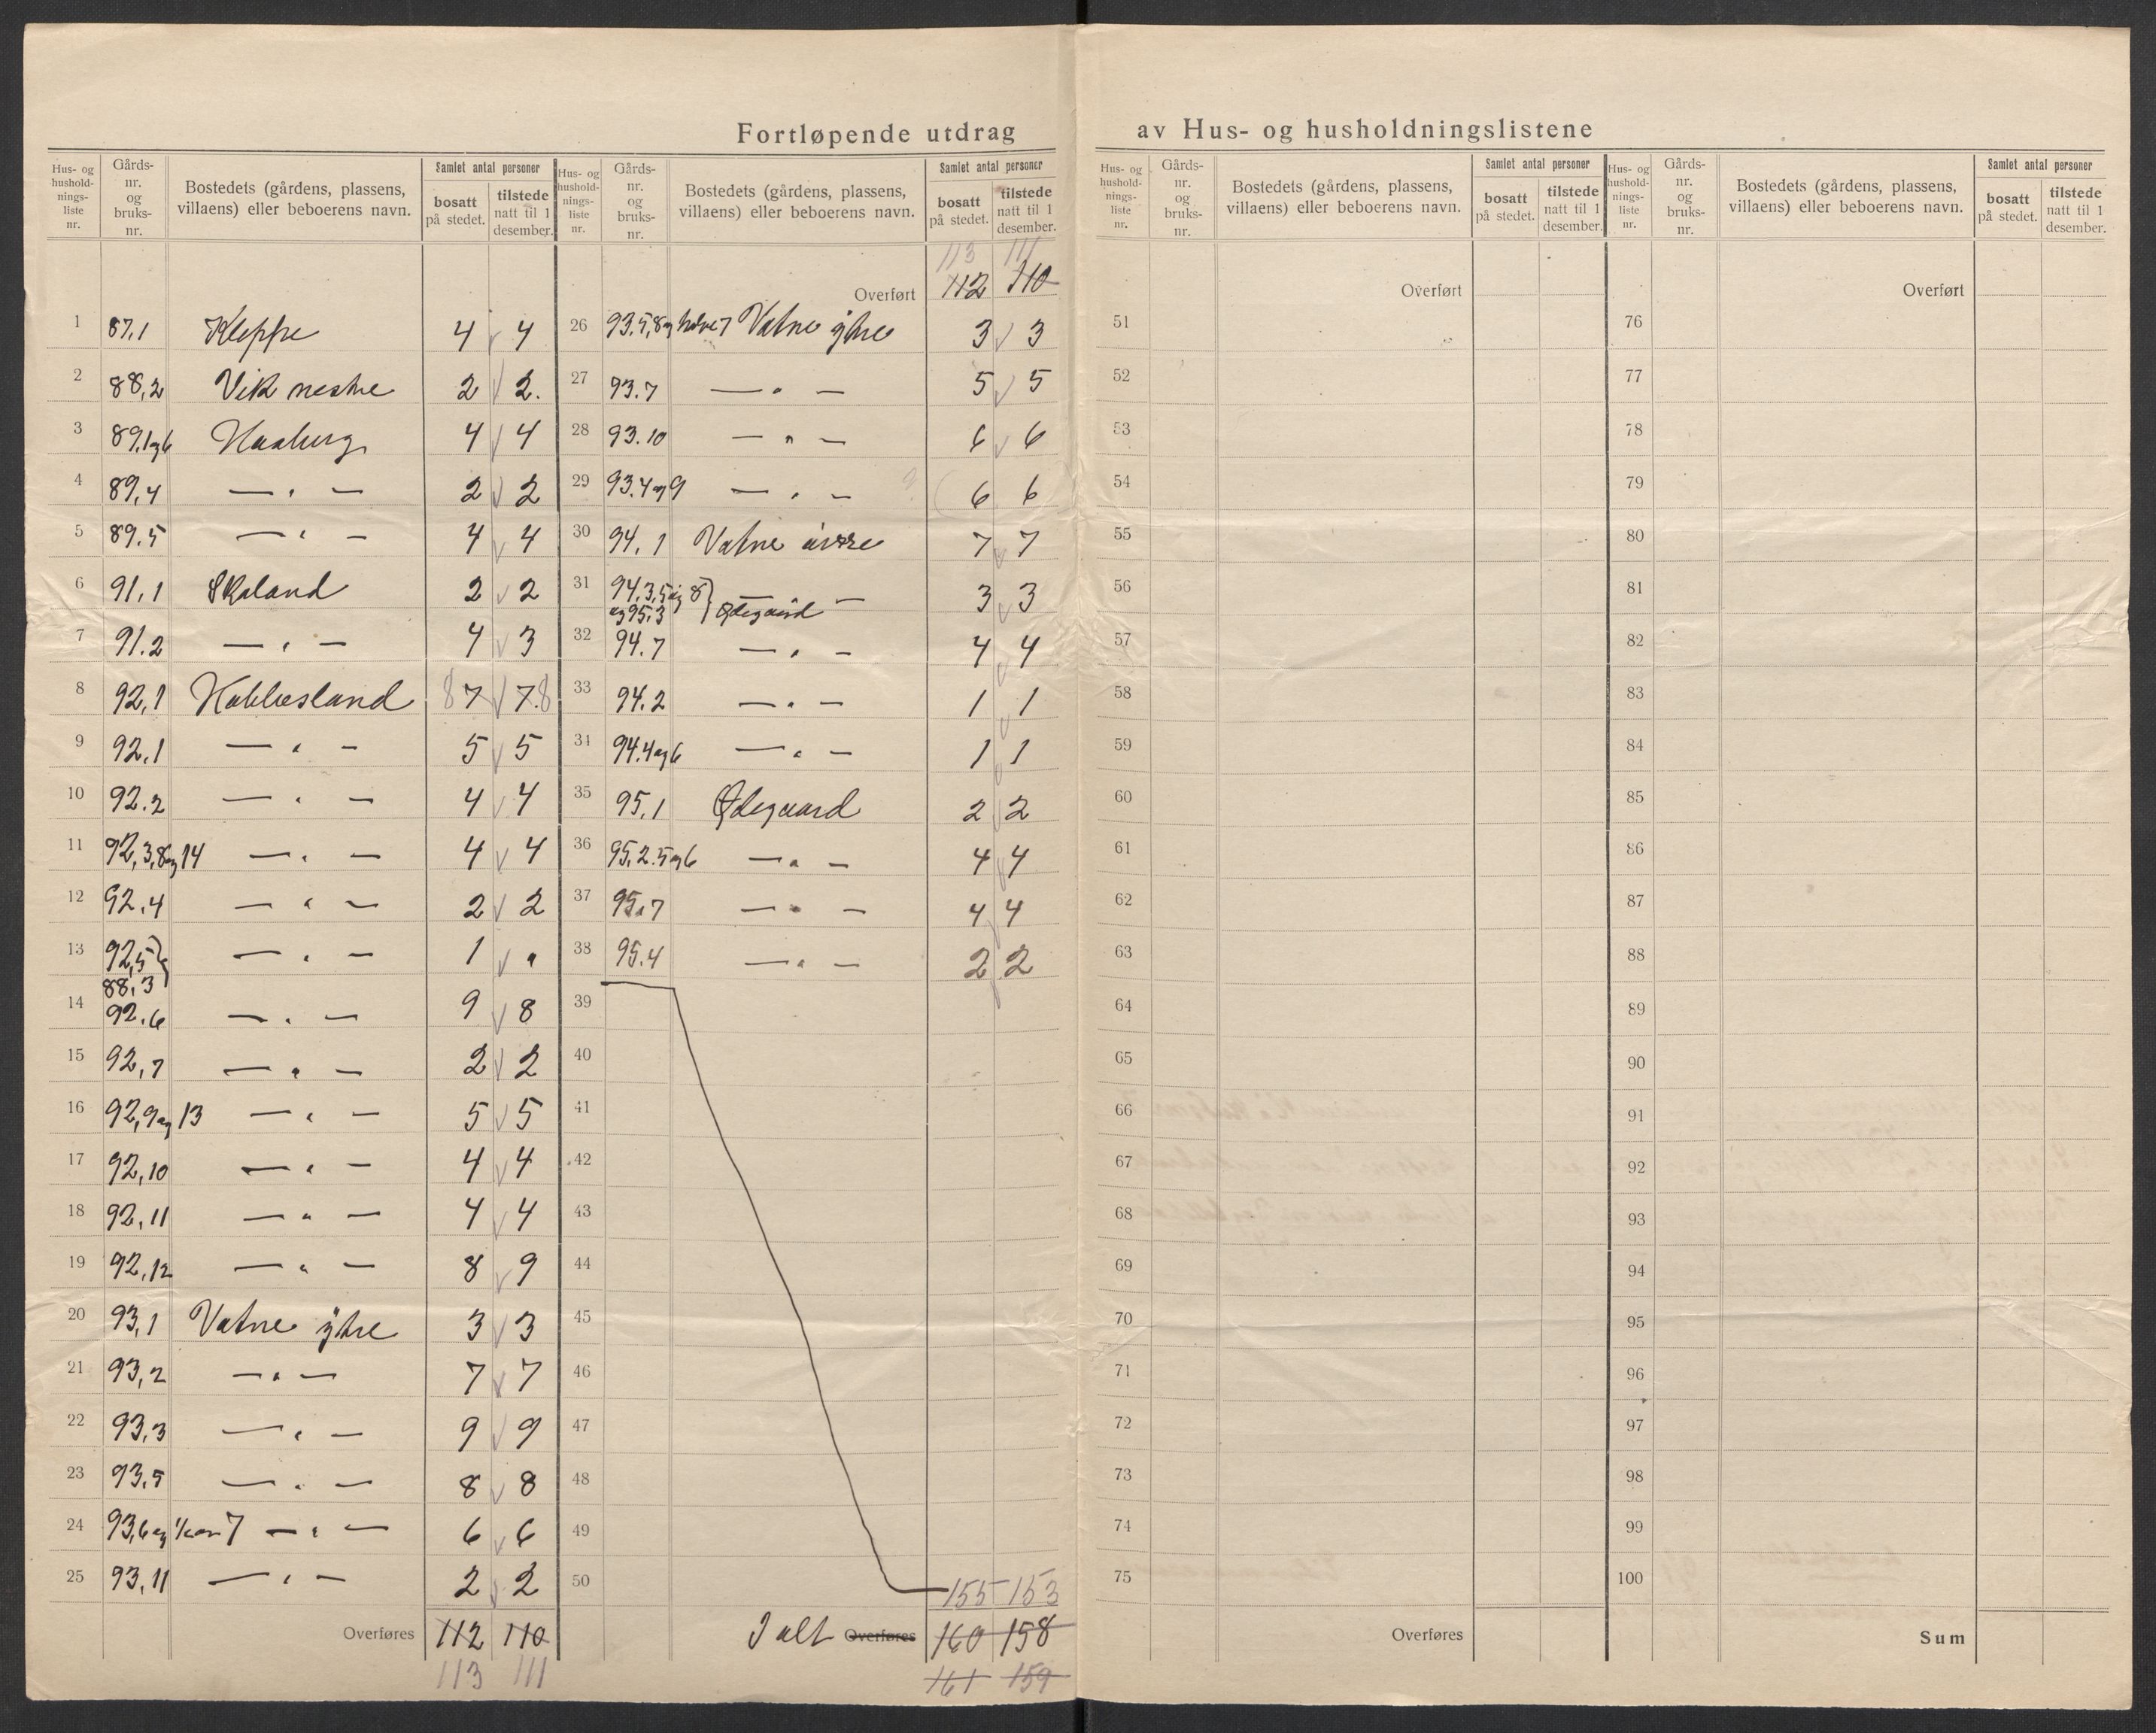 Fortløpende utdrag av Hus- og husholdningslistene
Hus- og hushold-nings-liste nr. Gårds-nr. og bruks-nr. Bostedets (gårdens, plassens, villaens) eller beboerens navn. Samlet antal personer bosatt på stedet. tilstede natt til 1 desember.
1 87,1 Kleppe 4 4
2 88,2 Vik nestre 2 2.
3 89,1 og 6 Haaberg 4 4
4 89,4 — " — 2 2
5 89.5 — " — 4 4
6 91,1 Skaland 2 2
7 91.2 — " — 4 3
8 92,1 Habbesland 8 7 7.8
9 92,1 — " — 5 5
10 92.2 — " — 4 4
11 92,3,8 og 14 — " — 4 4
12 92.4 — " — 2 2
13 92,5 } — " — 1 "
88,3
14 92.6 — " — 9 8
15 92,7 — " — 2 2
16 92,9 og 13 — " — 5 5
17 92,10 — " — 4 4
18 92,11 — " — 4 4
19 92,12 — " — 8 9
20 93,1 Vatne ytre 3 3
21 93,2 — " — 7 7
22 93,3 — " — 9 9
23 93,5 — " — 8 8
24 93,6 og 7 — " — 6 6
25 93,11 — " — 2 2
Overføres 112 110
113 111
Hus- og hushold-nings-liste nr. Gårds-nr. og bruks-nr. Bostedets (gårdens, plassens, villaens) eller beboerens navn. Samlet antal personer bosatt på stedet. tilstede natt til 1 desember.
113 111
Overført 112 110
26 93.5,8 og halve 7 Vatne ytre 3 3
27 93.7 — " — 5 5
28 93.10 — " — 6 6
29 93.4 og 9 — " — ? ( 6 6
30 94,1 Vatne øvre 7 7
31 94,3,5 og 8 } — — 3 3
og 95,3 Ødegaard
32 94.7 — " — 4 4
33 94.2 — " — 1 1
34 94.4 og 6 — " — 1 1
35 95,1 Ødegaard 2 2
36 95,2.5 og 6 — " — 4 4
37 95.7 — " — 4 4
38 95.4 — " — 2 2
39
40
41
42
43
44
45
46
47
48
49
50 155 153
I alt Overføres 160 158
161 159
Hus- og hushold-nings-liste nr. Gårds-nr. og bruks-nr. Bostedets (gårdens, plassens, villaens) eller beboerens navn. Samlet antal personer bosatt på stedet. tilstede natt til 1 desember.
Overført
51
52
53
54
55
56
57
58
59
60
61
62
63
64
65
66
67
68
69
70
71
72
73
74
75
Overføres
Hus- og hushold-nings-liste nr. Gårds-nr. og bruks-nr. Bostedets (gårdens, plassens, villaens) eller beboerens navn. Samlet antal personer bosatt på stedet. tilstede natt til 1 desember.
Overført
76
77
78
79
80
81
82
83
84
85
86
87
88
89
90
91
92
93
94
95
96
97
98
99
100
Sum